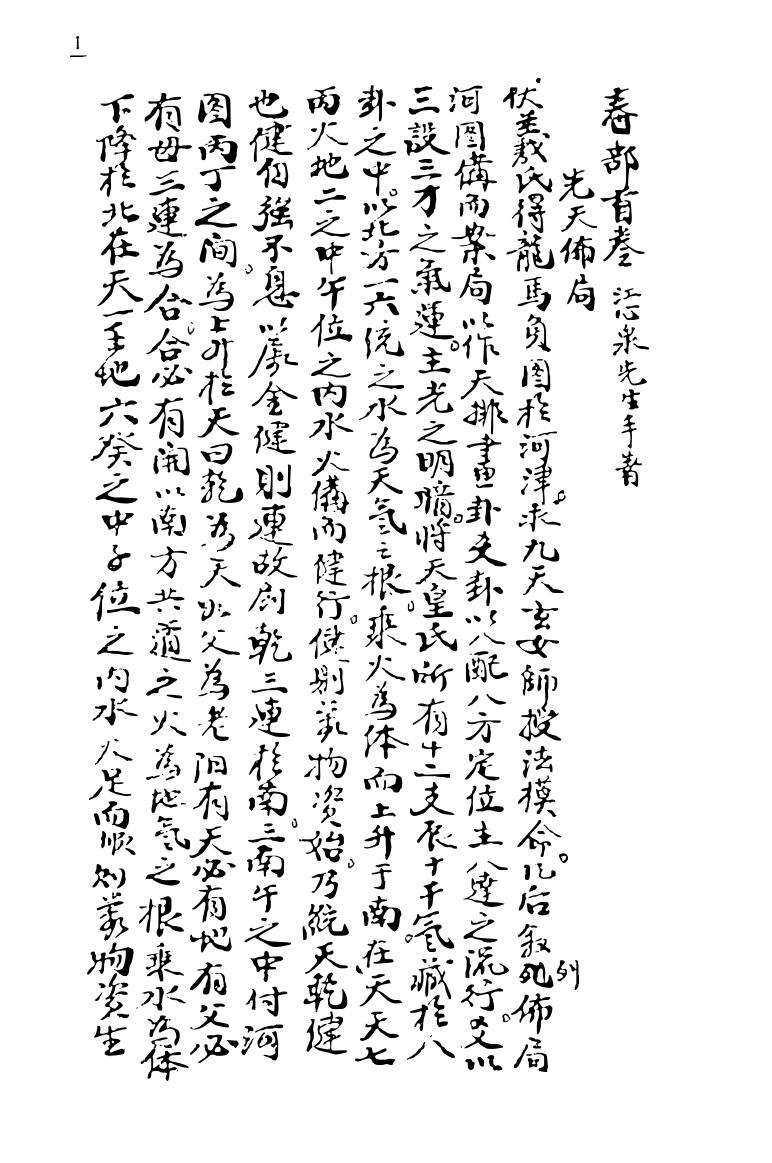 1
春部首卷 江心泉先生手書
先天佈局
伏羲氏得龍馬負圖於河津。求九天玄女師授法模命。后叙列佈局
河圖備而案局以作天排畫卦爻卦以八配八方定位主八達之流行。爻以
三設三才之氣運。主光之明暗。將天皇氏所有十二支辰十干氣藏於八
卦之中。以北方一六統之水為天氣之根。乘火為体而上升于南在天天七
丙火地二之中午位之內水火備而健行。健則萬物資始。乃統天乾健
也健自強不息以屬金健則連故剧乾三連於南。三南午之中付河
图丙丁之间。為上升於天曰乾為天以父為老阳有天必有地有父必
有母三連為合。合必有開以南方共通之火為地氣之根乘水為体
下降於北在天一壬地六癸之中子位之內水火足而順则萬物资生